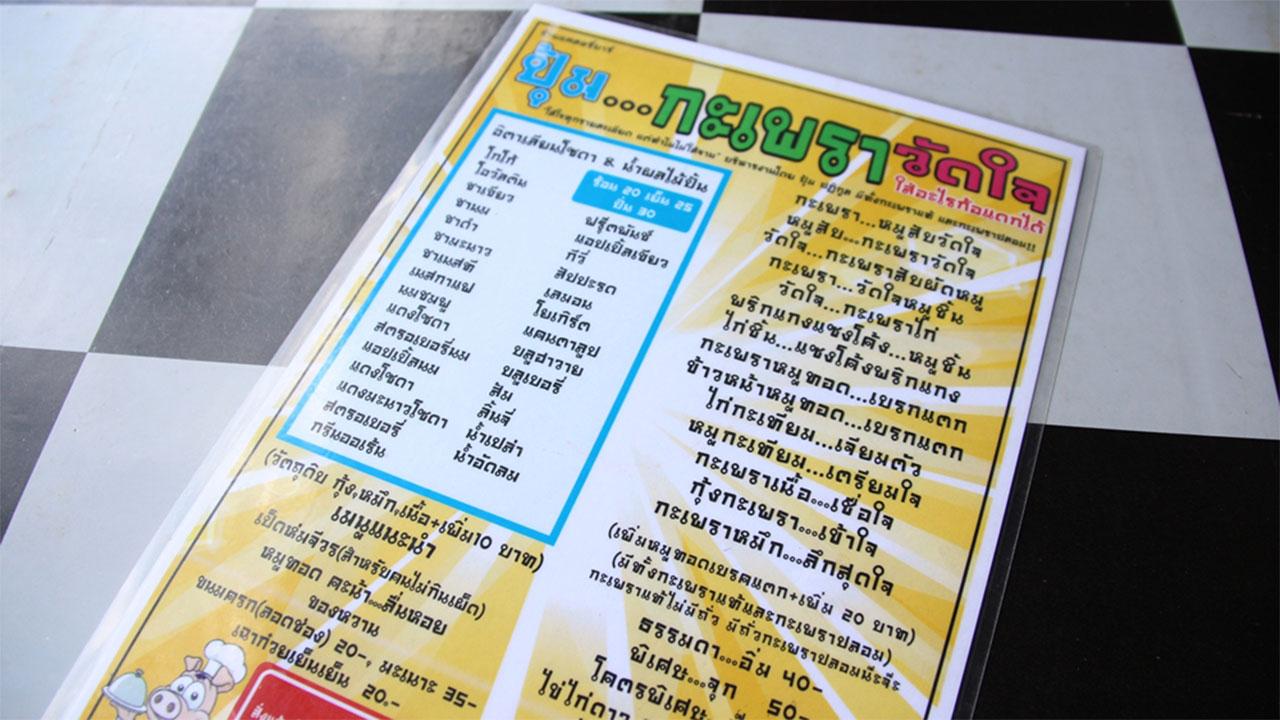 ปุ้ม...กะเพราวัดใจ
ใส่อะไรก้อแดกได้
อิตาเลียนโซดา & น้ำผลไม้ปั่น
ร้อน 20 เย็น 25
ปั่น 30
โกโก้
โอวัลติน
ชาเขียว
ชานม
ชาดำ
ชามะนาว
ชาเนสที
เนสกาแฟ
นมชมพู
แดงโซดา
สตรอเบอรี่นม
แอปเปิ้ลนม
แดงโซดา
แดงมะนาวโซดา
สตรอเบอรี่
กรีนออเร้น
ฟรุ๊ตพันช์
แอปเปิ้ลเขียว
กีวี่
สัปปะรด
เลมอน
โยเกิร์ต
แคนตาลูป
บลูฮาวาย
บลูเบอรี่
ส้ม
ลิ้นจี่
น้ำเปล่า
น้ำอัดลม
(วัตถุดิบ กุ้ง,หมึก,เนื้อ+เพิ่ม10 บาท)
เมนูแนะนำ
เป็ดห่มจีวร(สำหรับคนไม่กินเผ็ด)
หมูทอด คะน้า...สื่นหอย
ของหวาน
ขนมครก(ลอดช่อง) 20-, มะเนาะ 35-
เฉาก๊วยเย็นเย็น 20.-
กะเพรา...หมูสับวัดใจ
หมูสับ...กะเพราวัดใจ
วัดใจ...กะเพราสับผัดหมู
กะเพรา...วัดใจหมูชิ้น
วัดใจ...กะเพราไก่
พริกแกงแซงโค้ง...หมูชิ้น
ไก่ชิ้น...แซงโค้งพริกแกง
กะเพราหมูทอด...เบรกแตก
ข้าวหน้าหมูทอด...เบรกแตก
ไก่กะเทียม...เจียมตัว
หมูกะเทียม...เตรียมใจ
กะเพราเนื้อ...เชื่อใจ
กุ้งกะเพรา...เข้าใจ
กะเพราหมึก...ลึกสุดใจ
(เพิ่มหมูทอดเบรคแตก+เพิ่ม 20 บาท)
(มีทั้งกะเพราแท้และกะเพราปลอม)
กะเพราแท้ไม่มีถั่ว มีถั่วกะเพราปลอมน๊ะจ๊ะ
ธรรมดา...อิ่ม 40-
พิเศษ...จุก 50-
โคตรพิเศษ
ไข่ไก่ดาว